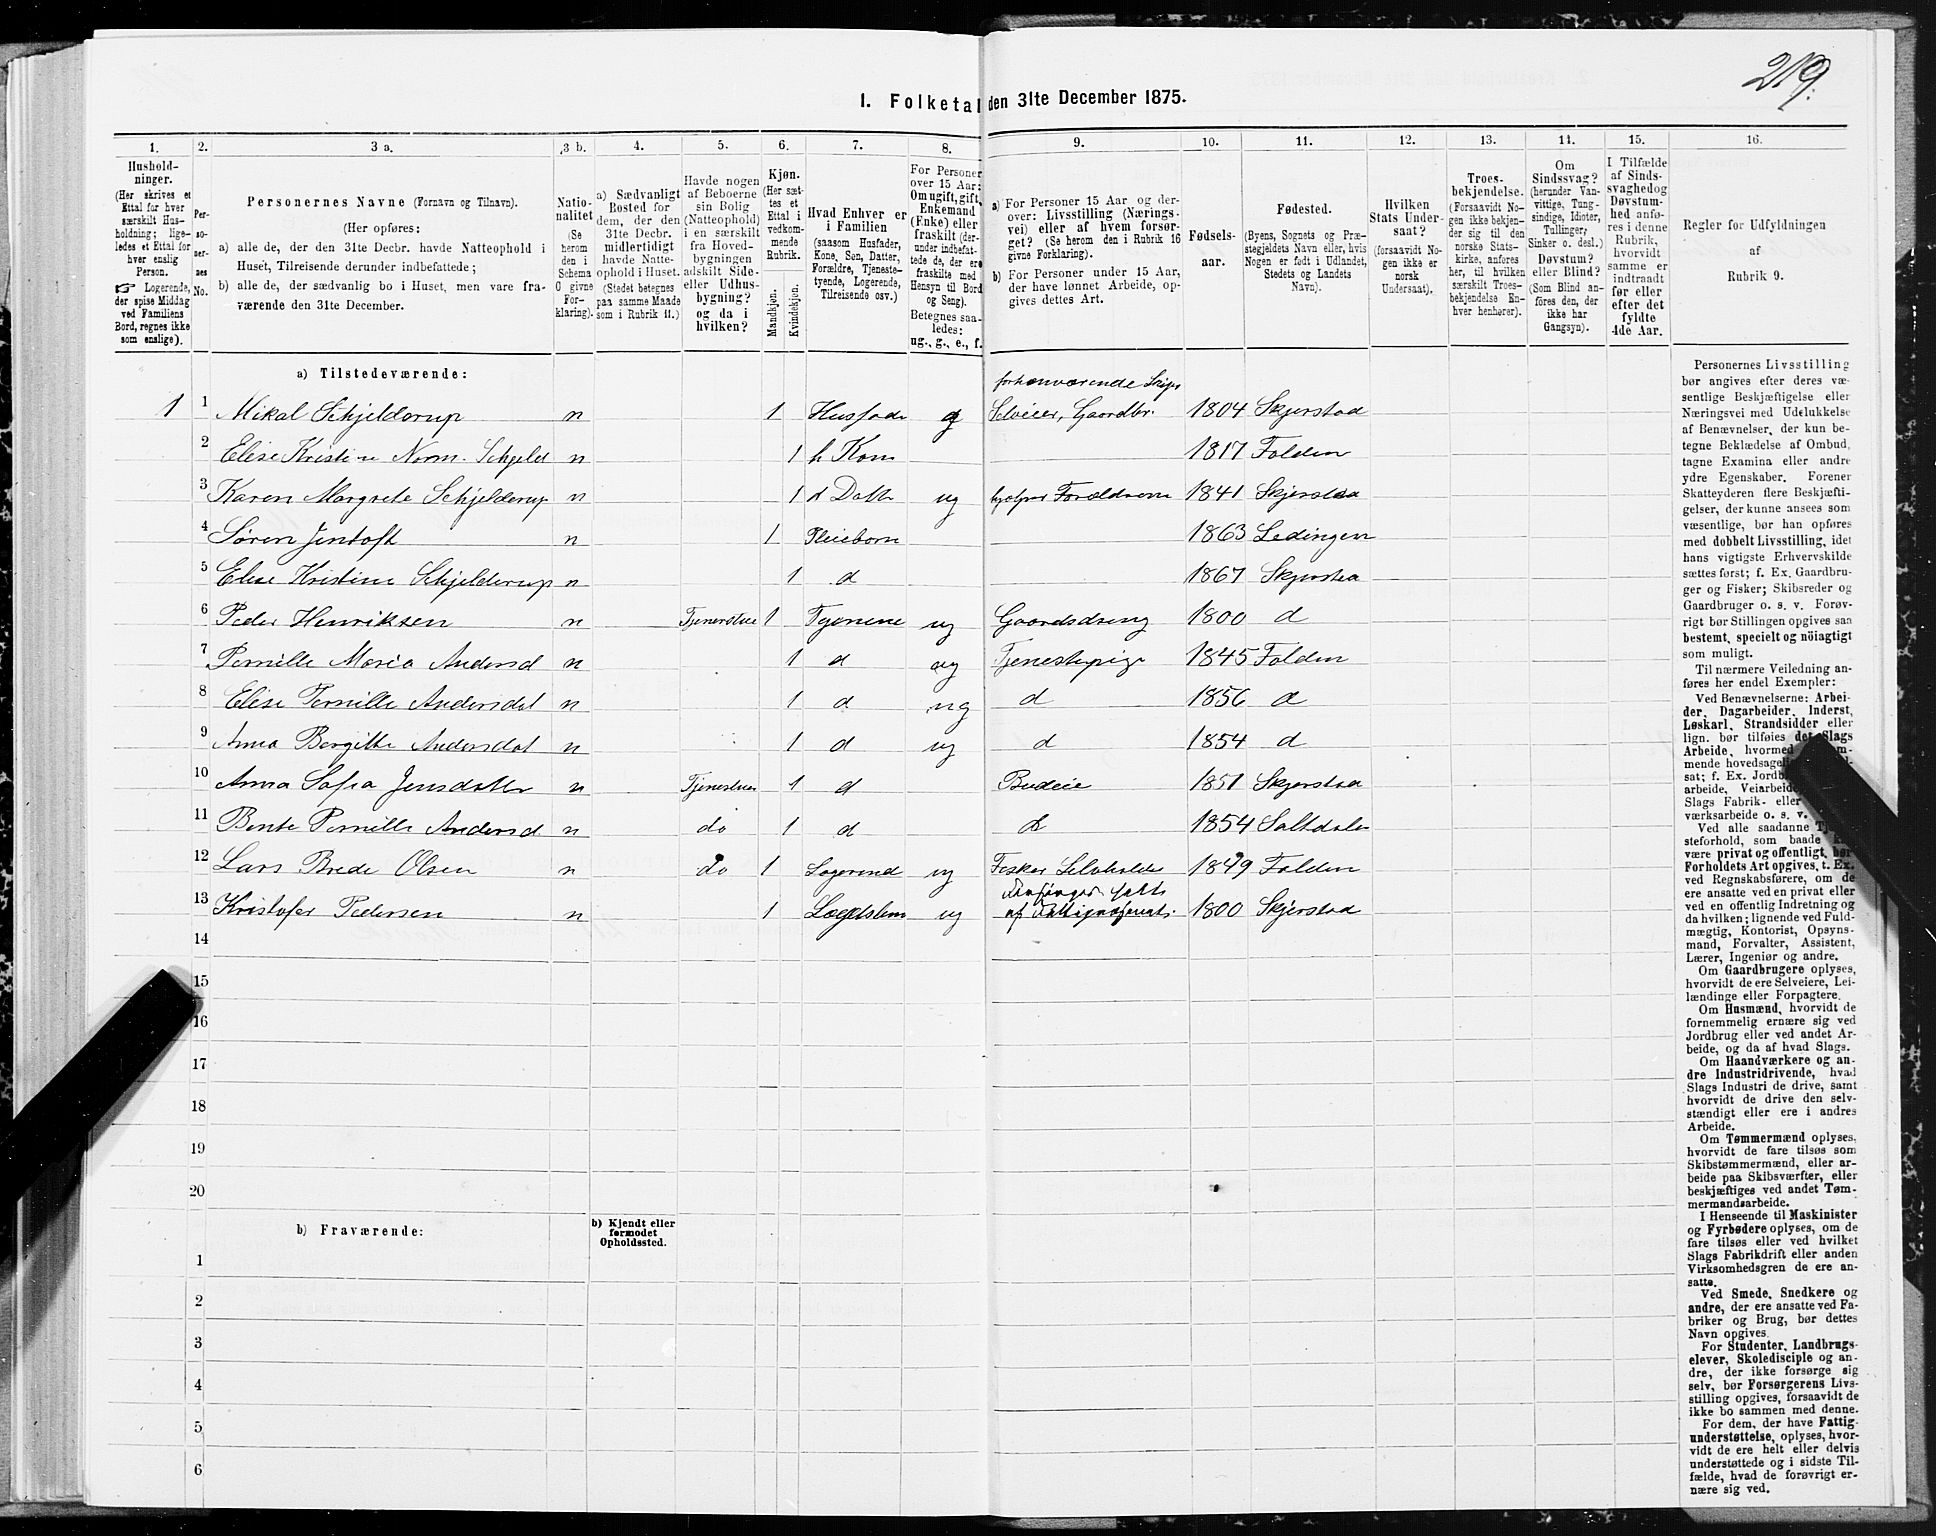 219.
1. Folketal den 31te December 1875.
1. 2. 3 a. 3 b. 4. 5. 6. 7. 8. 9. 10. 11. 12. 13. 14. 15. 16.
Hushold-
ninger.
(Her skrives et
Ettal for hver
særskilt Hus-
holdning; lige-
ledes et Ettal for
hver enslig
Person.
☞ Logerende,
der spise Middag
ved Familiens
Bord, regnes ikke
som enslige).
Per-
so-
ner-
nes
No.
Personernes Navne (Fornavn og Tilnavn).
(Her opføres:
a) alle de, der den 31te Decbr. havde Natteophold i
Huset, Tilreisende derunder indbefattede;
b) alle de, der sædvanlig bo i Huset, men vare fra-
værende den 31te December.
Natio-
nalitet
(Se
herom
den i
Schema
O givne
For-
klaring).
a) Sædvanligt
Bosted for
dem, der den
31te Decbr.
midlertidigt
havde Natte-
ophold i Huset.
(Stedet betegnes
paa samme Maade
som i Rubrik 11.)
Havde nogen
af Beboerne
sin Bolig
(Natteophold)
i en særskilt
fra Hoved-
bygningen
adskilt Side-
eller Udhus-
bygning?
og da i
hvilken?
Kjøn.
(Her sæt-
tes et
Ettal i
vedkom-
mende
Rubrik.
Mandkjøn.
Kvindekjøn.
Hvad Enhver er
i Familien
(saasom Husfader,
Kone, Søn, Datter,
Forældre, Tjeneste-
tyende, Logerende,
Tilreisende osv.)
For Personer
over 15 Aar:
Om ugift, gift,
Enkemand
(Enke) eller
fraskilt (der-
under indbefat-
tede de, der ere
fraskilte med
Hensyn til Bord
og Seng).
Betegnes saa-
ledes:
ug., g., e., f.
a) For Personer 15 Aar og der-
over: Livsstilling (Nærings-
vei) eller af hvem forsør-
get? (Se herom den i Rubrik 16
givne Forklaring).
b) For Personer under 15 Aar,
der have lønnet Arbeide, op-
gives dettes Art.
Fødsels-
aar.
Fødested.
(Byens, Sognets og Præ-
stegjeldets Navn eller, hvis
Nogen er født i Udlandet,
Stedets og Landets
Navn).
Hvilken
Stats Under-
saat?
(forsaavidt No-
gen ikke er
norsk
Undersaat).
Troes-
bekjendelse.
(Forsaavidt No-
gen ikke bekjen-
der sig til den
norske Stats-
kirke, anføres
her, til hvilken
særskilt Troes-
bekjendelse En-
hver henhører).
Om
Sindssvag?
(herunder Van-
vittige, Tung-
sindige, Idioter,
Tullinger,
Sinker o. desl.)
Døvstum?
eller Blind?
(Som Blind an-
føres den, der
ikke har
Gangsyn).
I Tilfælde
af Sinds-
svaghed og
Døvstum-
hed anfø-
res i denne
Rubrik,
hvorvidt
samme er
indtraadt
før eller
efter det
fyldte
4de Aar.
Regler for Udfyldningen
af
Rubrik 9.
a) Tilstedeværende:
forhenværende Skips
1 1 Mikal Schjelderup n 1 Husfade g Selveier, Gaardbr. 1804 Skjerstad
2 Elise Kristine Norm. Schjeld n 1 h Kone 1817 Folden
3 Karen Margrete Schjelderup n 1 d Datte ug hjælper Forældrene 1841 Skjerstaa
4 Søren Jentoft n 1 Pleiebarn 1863 Lødingen
5 Elise Kristine Schjelderup n 1 d 1867 Skjerstaa
6 Peder Henriksen n Tjenerstue 1 Tyenene ug Gaardsdreng 1800 d
7 Pernille Maria Andersd n 1 d ug Tjenestepige 1845 Folden
8 Elise Pernille Andersdat n 1 d ug d 1856 d
9 Anna Bergitte Andersdat n 1 d ug d 1854 d
10 Anna Sofia Jensdatter n Tjenestuen 1 d Budeie 1851 Skjerstaa
11 Bente Pernille Andersd n do 1 d d 1854 Saltdalen
12 Lars Brede Olsen n do 1 Logerend ug Fisker Selvholden 1849 Folden
13 Kristofer Pedersen n 1 Lægdslem ug af 1800 Skjerstad
14
15
16
17
18
19
20
b) Fraværende:
b) Kjendt eller
formodet
Opholdssted.
1
2
3
4
5
6
Personernes Livsstilling
bør angives efter deres væ-
sentlige Beskjæftigelse eller
Næringsvei med Udelukkelse
af Benævnelser, der kun be-
tegne Beklædelse af Ombud,
tagne Examina eller andre
ydre Egenskaber. Forener
Skatteyderen flere Beskjæfti-
gelser, der kunne ansees som
væsentlige, bør han opføres
med dobbelt Livsstilling, idet
hans vigtigste Erhvervskilde
sættes først; f. Ex. Gaardbru-
ger og Fisker; Skibsreder og
Gaardbruger o. s. v. Forøv-
rigt bør Stillingen opgives saa
bestemt, specielt og nöiagtigt
som muligt.
Til nærmere Veiledning an-
føres her endel Exempler:
Ved Benævnelserne: Arbei-
der, Dagarbeider, Inderst,
Løskarl, Strandsidder eller
lign. bør tilføies det Slags
Arbeide, hvormed
mende hovedsagelig
sat; f. Ex. Jordb
arbeide, Veiarbeide
Slags Fabrik- eller
værksarbeide o. s. v.
Ved alle saadanne
steforhold, som baade
være privat og offentligt, bør
Forholdets Art opgives, t. Ex.
ved Regnskabsførere, om de
ere ansatte ved en privat eller
ved en offentlig Indretning og
da hvilken; lignende ved Fuld-
mægtig, Kontorist, Opsyns-
mand, Forvalter, Assistent,
Lærer, Ingeniør og andre.
Om Gaardbrugere oplyses,
hvorvidt de ere Selveiere, Lei-
lændinge eller Forpagtere.
Om Husmænd, hvorvidt de
fornemmelig ernære sig ved
Jordbrug eller ved andet Ar-
beide, og da af hvad Slags.
Om Haandværkere og an-
dre Industridrivende, hvad
Slags Industri de drive, samt
hvorvidt de drive den selv-
stændigt eller ere i andres
Arbeide.
Om Tømmermænd oplyses,
hvorvidt de fare tilsøs som
Skibstømmermænd, eller ar-
beide paa Skibsværfter, eller
beskjæftiges ved andet Tøm-
mermandsarbeide.
I Henseende til Maskinister
og Fyrbødere oplyses, om de
fare tilsøs eller ved hvilket
Slags Fabrikdrift eller anden
Virksomhedsgren de ere an-
satte.
Ved Smede, Snedkere og
andre, der ere ansatte ved Fa-
briker og Brug, bør dettes
Navn opgives.
For Studenter, Landbrugs-
elever, Skoledisciple og an-
dre, der ikke forsørge sig
selv, bør Forsørgerens Livs-
stilling opgives, forsaavidt de
ikke bo sammen med denne.
For dem, der have Fattig-
understøttelse, oplyses, hvor-
vidt de ere helt eller delvis
understøttede og i sidste Til-
fælde, hvad de forøvrigt er-
nære sig ved.